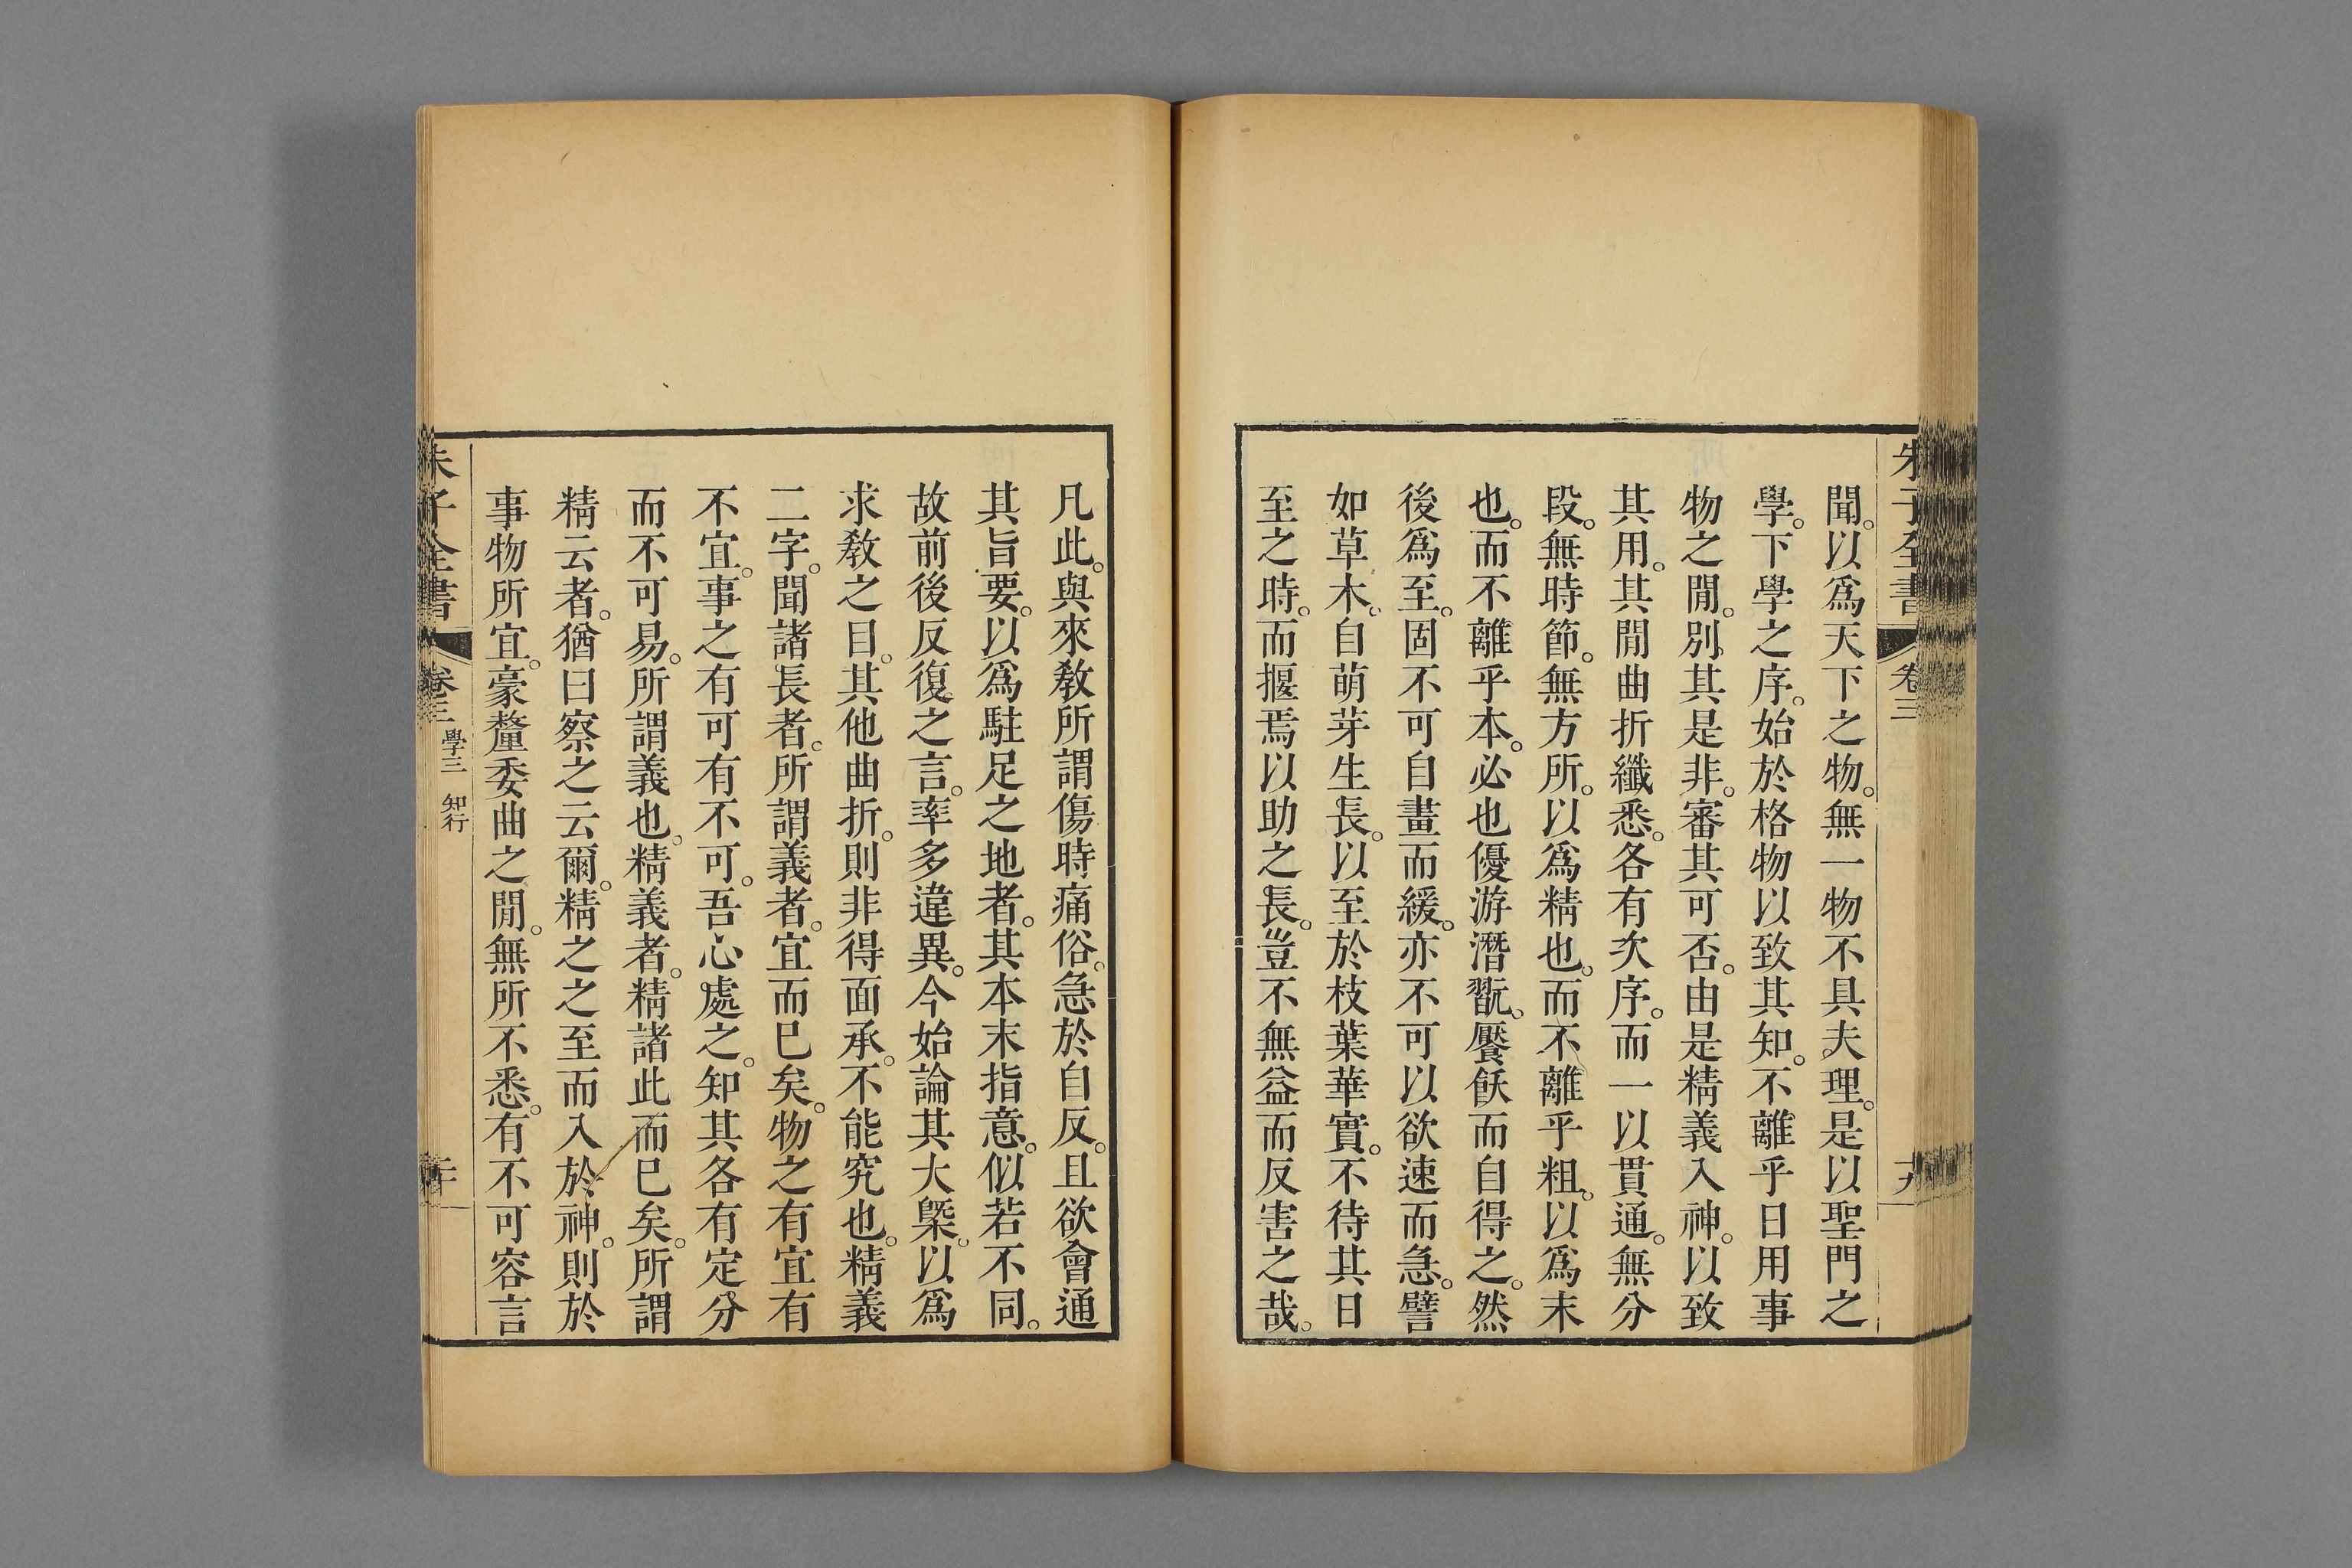 朱子全書 卷三 十九
聞。以爲天下之物。無一物不具夫理。是以聖門之
學。下學之序。始於格物以致其知。不離乎日用事
物之閒。別其是非。審其可否。由是精義入神。以致
其用。其閒曲折纖悉。各有次序。而一以貫通。無分
段。無時節。無方所。以爲精也。而不離乎粗。以爲末
也。而不離乎本。必也優游潛翫。饜飫而自得之。然
後爲至。固不可自畫而緩。亦不可以欲速而急。譬
如草木。自萌芽生長。以至於枝葉華實。不待其日
至之時。而揠焉以助之長。豈不無益而反害之哉。
凡此。與來敎所謂傷時痛俗。急於自反。且欲會通
其旨要。以爲駐足之地者。其本末指意。似若不同。
故前後反復之言。率多違異。今始論其大槩。以爲
求敎之目。其他曲折。則非得面承。不能究也。精義
二字。聞諸長者。所謂義者。宜而已矣。物之有宜有
不宜。事之有可有不可。吾心處之。知其各有定分
而不可易。所謂義也。精義者。精諸此而已矣。所謂
精云者。猶曰察之云爾。精之之至而入於神。則於
事物所宜。豪釐委曲之閒。無所不悉。有不可容言
朱子全書 卷三 學三 知行 二十